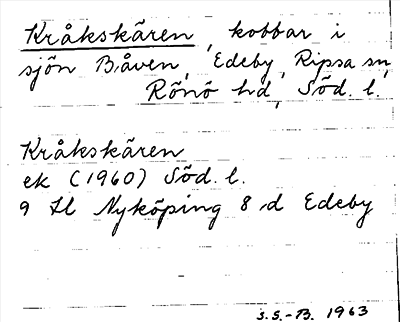 Kråkskären, kobbar i
sjön Båven, Edeby, Ripsa sn,
Rönö hd, Söd. l.
Kråkskären
ek (1960) Söd. l.
9 Il Nyköping 8 d Edeby
S.S.-B. 1963